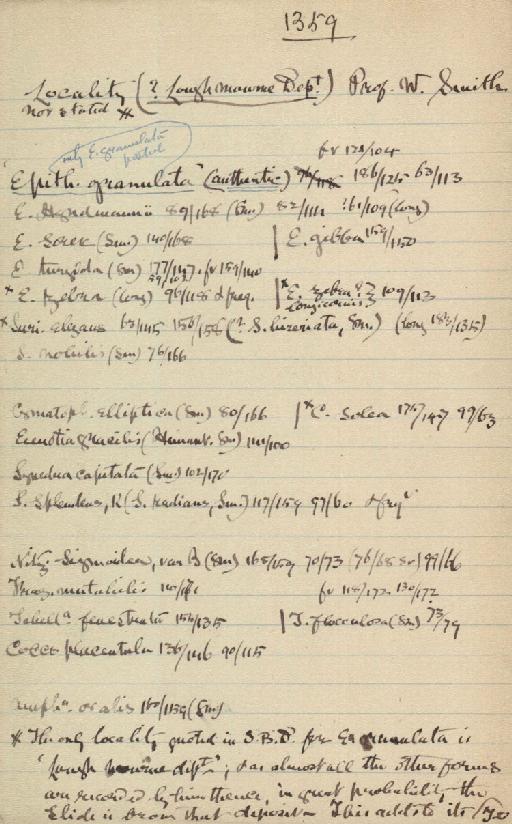 1359
Locality (? Lough mourne Dep.t) Prof. W. Smith
not stated *
only E. granulata
posted
fr 128/104
"Epith. granulata" (authentic) 186/125 63/113
E. Hyndmannii 89/168 (Sm) 82/111 61/109 (long)
E. Sorex (Sm) 140/168 | E. gibba 159/150
E. turgida (Sm) 177/147. fr 159/140
* E. zebra (long) 96/118 & freq. | * E. zebra? 109/113
longicornis?
* Suri. elegans 63/145 156/156 (? S. biseriata, Sm.) (long 182/135)
S. nobilis (Sm) 76/166
Cymatopl. elliptica (Sm) 80/166 | * C. Solea 175/147 97/63
Eunotia gracilis (Himant. Sm) 141/100
Synedra capitata (Sm) 102/170
S. Splendens, K (S. Radians, Sm.) 117/159 97/60 & freq
Nitz. Sigmoidea, var B (Sm) 165/159 70/73 (76/68 80) 99/66
mutabilis fr 118/172 130/172
Tabell.a fenestrata 156/135 | T. flocculosa (Sm) 73/79
Cocco placentula 136/146 90/115
Amph.a ovalis 160/139 (Sm)
* The only locality quoted in S.B.D. for E. granulata is
"Lough mourne dep.t"; & as almost all the other forms
are recorded by him thence, in great probability the
slide is from that deposit. This adds to its